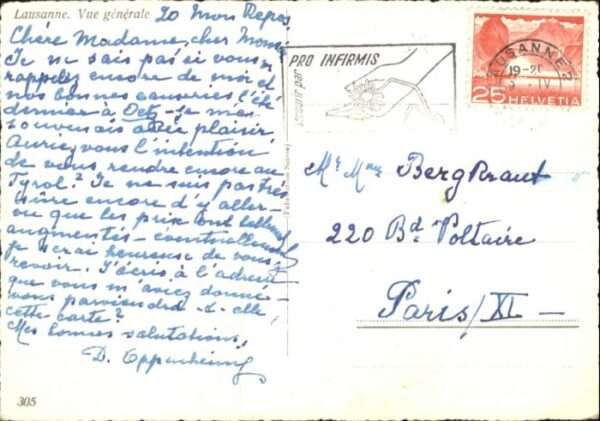 Lausanne. Vue générale
20 Mon Repos
Chère Madame, cher Mons
Je ne sais pas si vous
rappelez encore de moi et
nos bonnes causeries l'été
dernier à Oetz - Je m'es
souvenais avec plaisir
Auriez vous l'intention
de vous rendre encore au
Tyrol? Je ne suis pas très
sûre encore d'y aller -
vu que les prix ont tellement
augmentés - éventuellement
je serai heureuse de vous
revoir. J'écris à l'adresse
que vous m'aviez donné -
vous parviendra-t-elle,
cette carte?
Mes bonnes salutations,
D. Oppenheim
305
PRO INFIRMIS
LAUSANNE 2
19-2
IV
25 HELVETIA
Mr Mme BergKraut
220 Bd. Voltaire
Paris/XI -